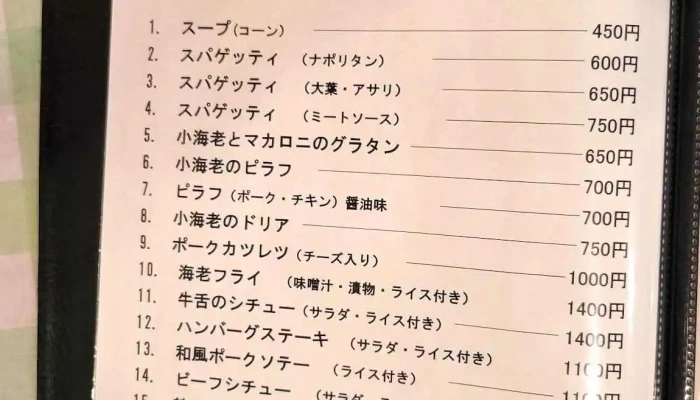 1. スープ(コーン) 450円
2. スパゲッティ （ナポリタン） 600円
3. スパゲッティ （大葉・アサリ） 650円
4. スパゲッティ （ミートソース） 750円
5. 小海老とマカロニのグラタン 650円
6. 小海老のピラフ 700円
7. ピラフ（ポーク・チキン）醤油味 700円
8. 小海老のドリア 750円
9. ポークカツレツ（チーズ入り） 1000円
10. 海老フライ （味噌汁・漬物・ライス付き） 1400円
11. 牛舌のシチュー（サラダ・ライス付き） 1400円
12. ハンバーグステーキ （サラダ・ライス付き） 1100円
13. 和風ポークソテー （ライス付き） 1100円
14. ビーフシチュー （サラダ・ラ